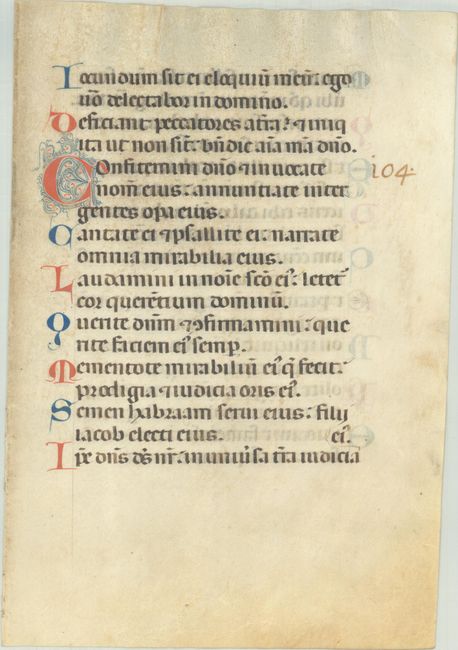 Iocundum sit ei eloquiũ meũ: ego
uo̅ delectabor in domino.
Deficiant peccatores a tr̃a: ⁊ iniq
ita ut non sint: bñdic aĩa mã dño.
Confitemini dño ⁊ inuocate
nom̃ eius: annuntiate inter
gentes opa eius.
104
Cantate ei ⁊ psallite ei: narrate
omnia mirabilia eius.
Laudamini in noĩe scõ eiꝰ: letet᷑
cor querẽtium dominũ.
Querite dñm ⁊ ꝯfirmamini: que
rite faciem eiꝰ semp̲.
Mementote mirabiliũ eiꝰ q̃ fecit:
prodigia ⁊ iudicia oris eiꝰ.
Semen habraam serui eius: filij
iacob electi eius. eiꝰ.
Ip̃e dñs dẽ nr̃: in uniũsa tr̃a iudicia